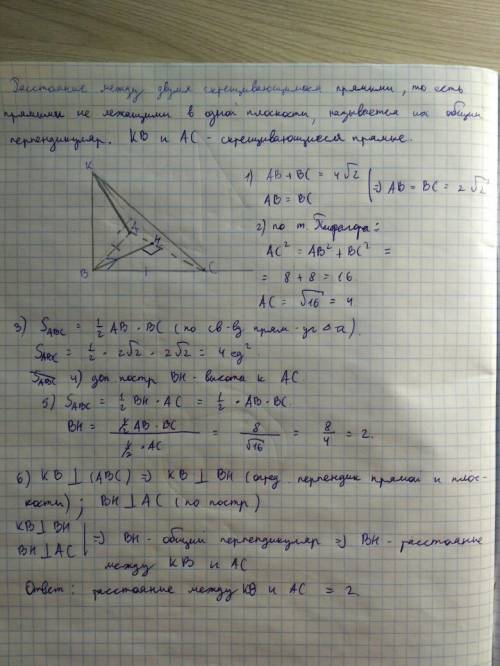 Расстояние между двумя скрещивающимися прямыми, то есть
прямыми не лежащими в одной плоскости, называется их общий
перпендикуляр. KB и AC - скрещивающиеся прямые.
K
A
H
B
C
1) AB + BC = 4√2 | => AB = BC = 2√2
AB = BC
2) по т. Пифагора:
AC² = AB² + BC² =
= 8 + 8 = 16
AC = √16 = 4
3) S_ABC = 1/2 AB · BC (по св-ву прям-уг Δ-а).
S_ABC = 1/2 · 2√2 · 2√2 = 4 ед².
4) доп постр BH - высота к AC
5) S_ABC = 1/2 BH · AC = 1/2 · AB · BC
BH = (1/2 AB · BC)/(1/2 · AC) = 8/√16 = 8/4 = 2.
6) KB ⊥ (ABC) => KB ⊥ BH (опред перпендик прямой и плос-
кости) ; BH ⊥ AC (по постр)
KB ⊥ BH
BH ⊥ AC | => BH - общий перпендикуляр => BH - расстояние
между KB и AC
Ответ: расстояние между KB и AC = 2